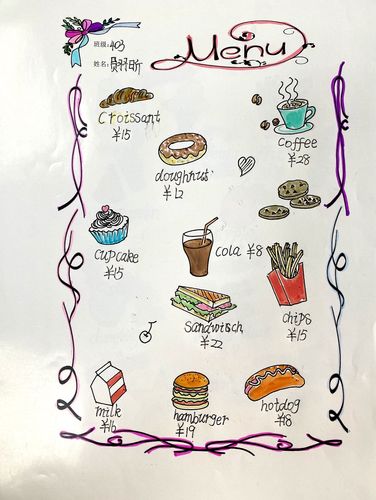 班级:403
姓名:
Menu
Croissant
¥15
coffee
¥28
doughnut
¥12
cupcake
¥15
cola ¥8
chips
¥15
Sandwisch
¥22
milk
¥16
hamburger
¥19
hotdog
¥18